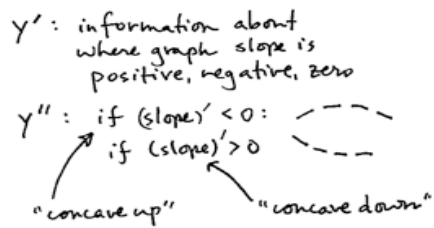 y': information about
where graph slope is
positive, negative, zero
y'': if (slope)' < 0:
if (slope)' > 0
"concave up" "concave down"